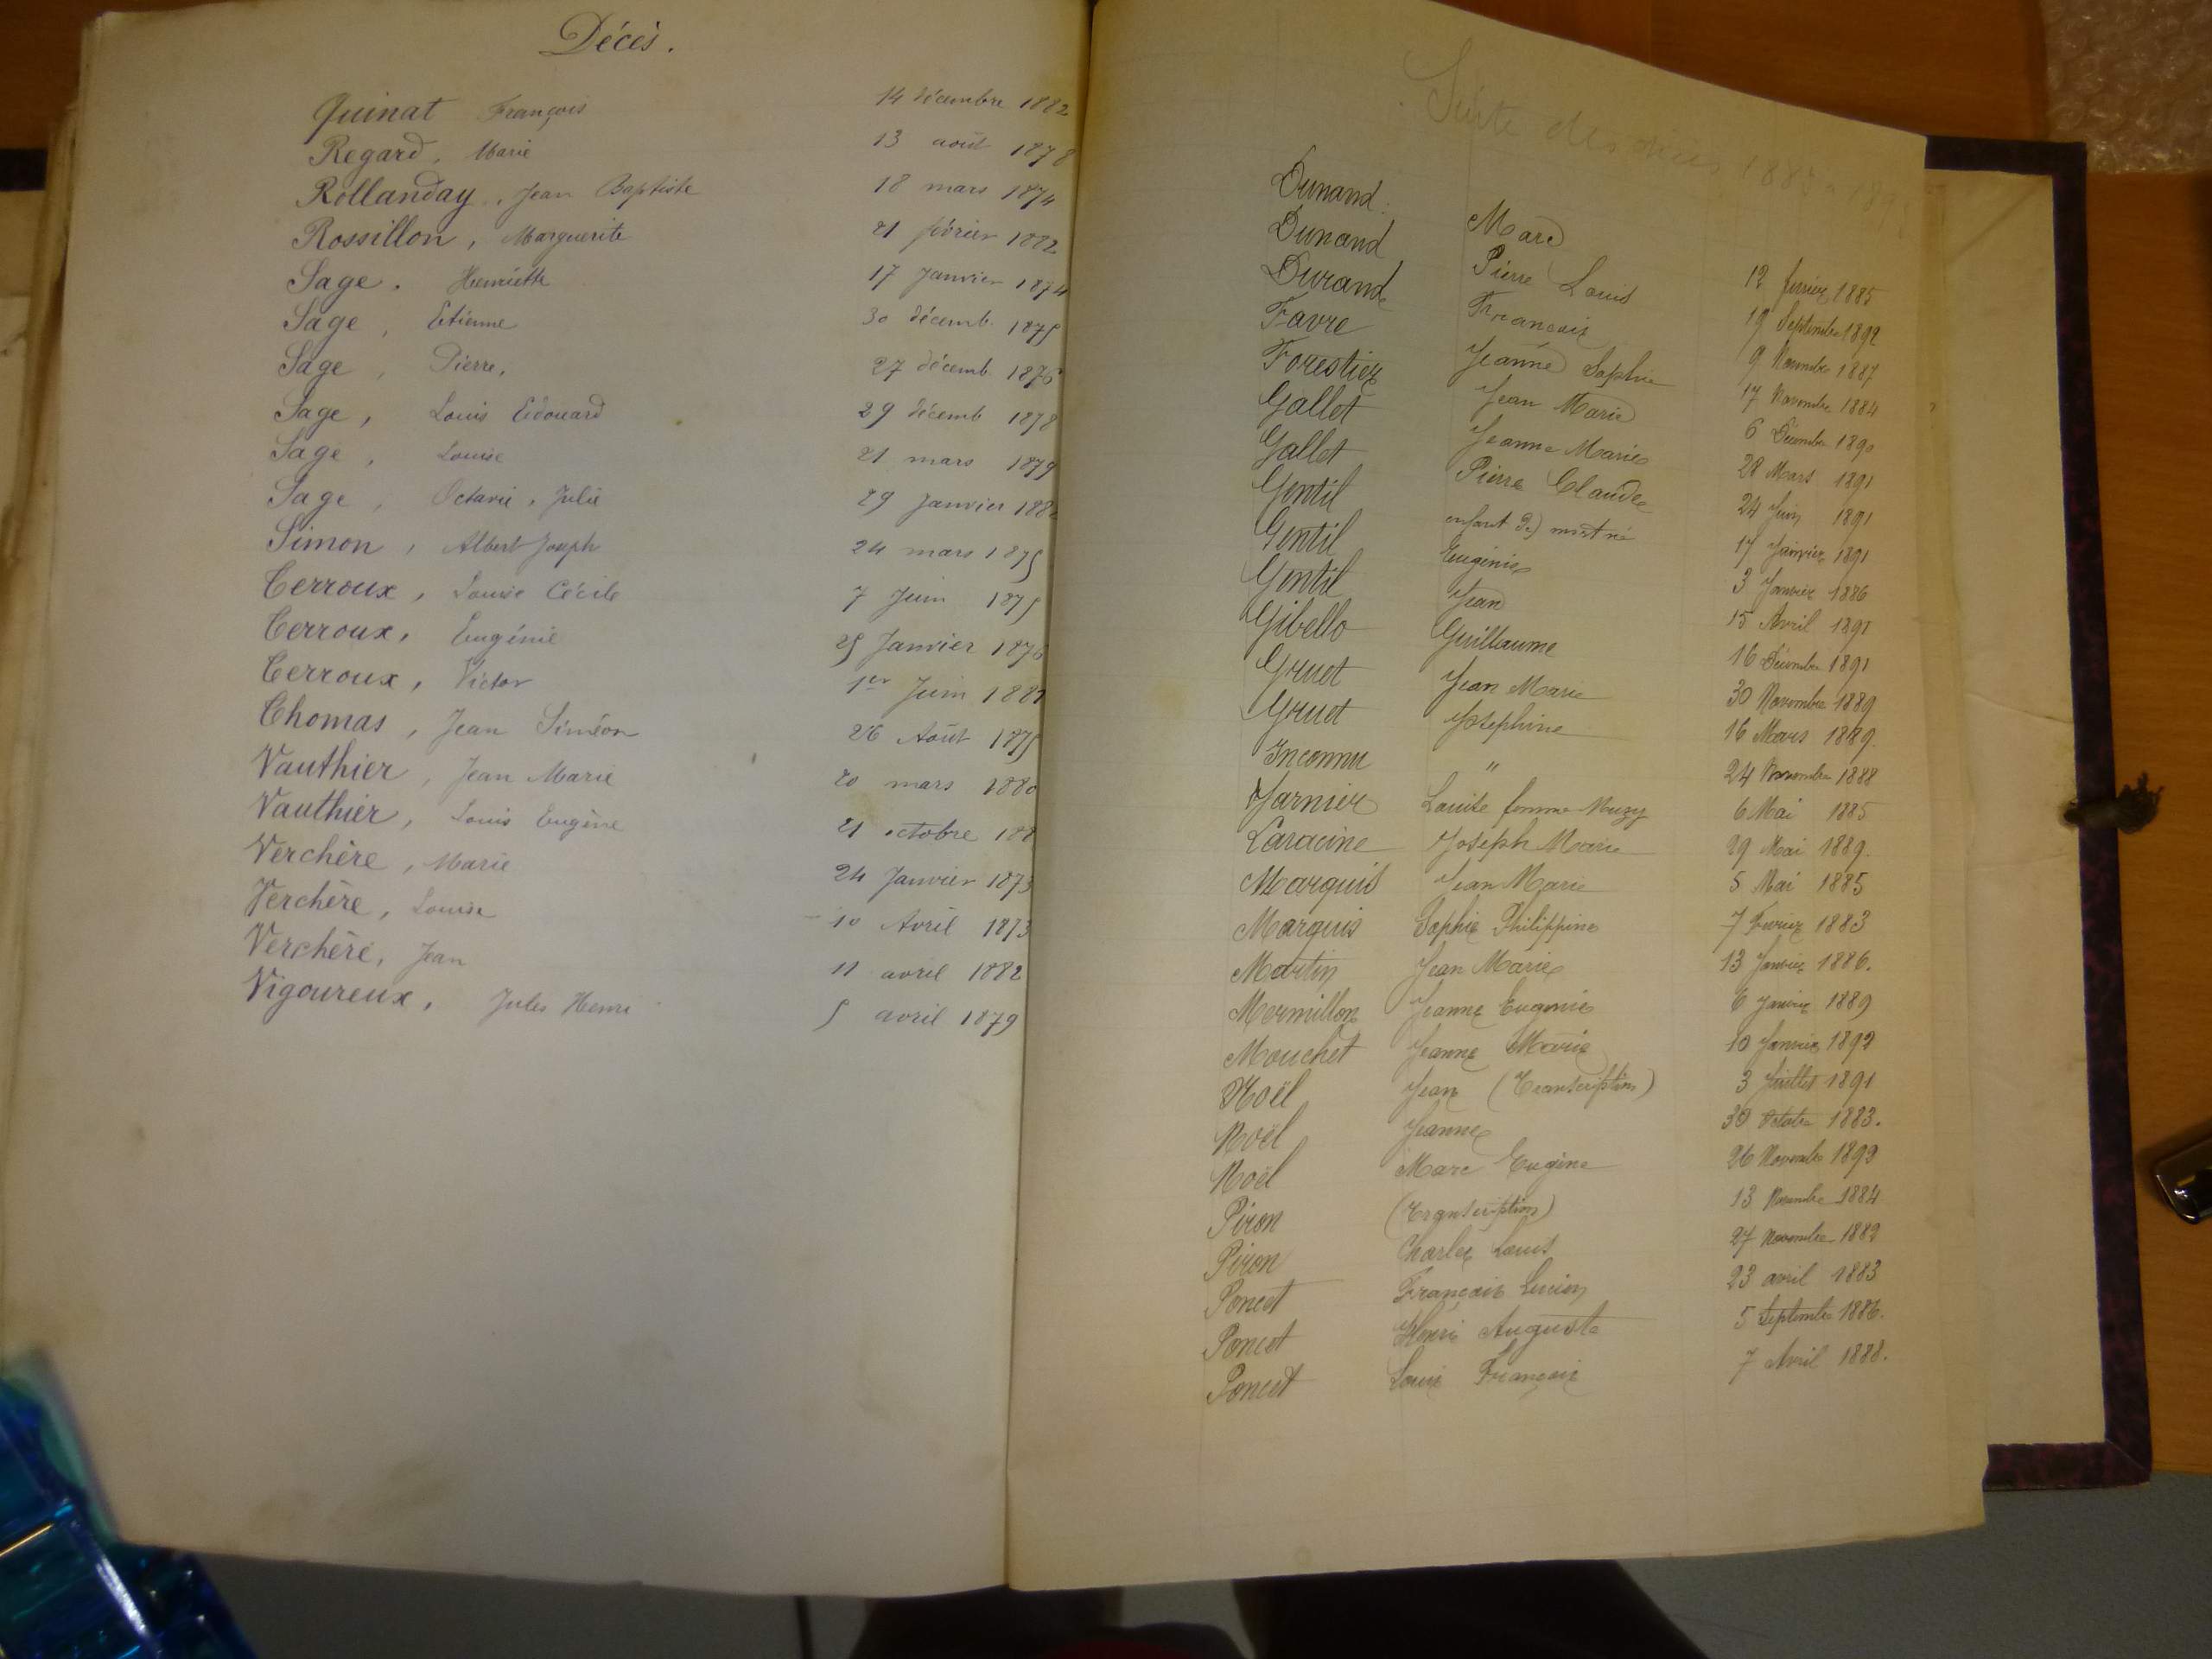 Décès.
Quinat François 14 décembre 1882
Regard, Marie 13 août 1878
Rollanday, Jean Baptiste 18 mars 1874
Rossillon, Marguerite 21 février 1882
Sage. Henriette 17 Janvier 1874
Sage, Etienne 30 décemb. 1875
Sage, Pierre, 27 décemb. 1876
Sage, Louis Edouard 29 décemb 1878
Sage, Louise 21 mars 1879
Sage, Octavie, Julie 29 Janvier
Simon, Albert Joseph 24 mars 1875
Terroux, Louise Cécile 7 Juin 1875
Terroux, Eugénie 25 Janvier 1876
Terroux, Victor 1er Juin 1881
Thomas, Jean Siméon 26 Août 1875
Vauthier, Jean Marie 20 mars 1880
Vauthier, Louis Eugène 21 octobre
Verchère, Marie 24 Janvier 1873
Verchère, Louise 10 Avril 1873
Verchère, Jean 11 avril 1882
Vigoureux, Jules Henri 5 avril 1879
Suite des décès
Dunand. Marc 12 février 1885
Dunand Pierre Louis 19 Septembre 1892
Durand François 9 Novembre 1887
Favre Jeanne Sophie 17 Novembre 1884
Forestier Jean Marie 6 Décembre 1890
Gallet Jeanne Marie 28 Mars 1891
Gallet Pierre Claude 24 Juin 1891
Gentil enfant de) mort né 17 Janvier 1891
Gentil Eugénie 3 Janvier 1886
Gentil Jean 15 Avril 1891
Gibello Guillaume 16 Décembre 1891
Gruet Jean Marie 30 Novembre 1889
Gruet Josephine 16 Mars 1889.
Inconnu " 24 Novembre 1888
Jarnier Louise femme Muzy 6 Mai 1885
Laracine Joseph Marie 29 Mai 1889.
Marquis Jean Marie 5 Mai 1885
Marquis Sophie Philippine 7 Fevrier 1883
Martin Jean Marie 13 Janvier 1886.
Mermillon Jeanne Eugenie 6 Janvier 1889
Mouchet Jeanne Marie 10 Janvier 1892
Noël Jean (Transcription) 3 Juillet 1891
Noël Jeanne 30 Octobre 1883.
Noël Marc Eugène 26 Novembre 1892
Piron (Transcription) 13 Novembre 1884
Piron Charles Louis 27 Novembre 1882
Poncet François Lucien 23 avril 1883
Poncet Henri Auguste 5 Septembre 1886.
Poncet Louis François 7 Avril 1888.